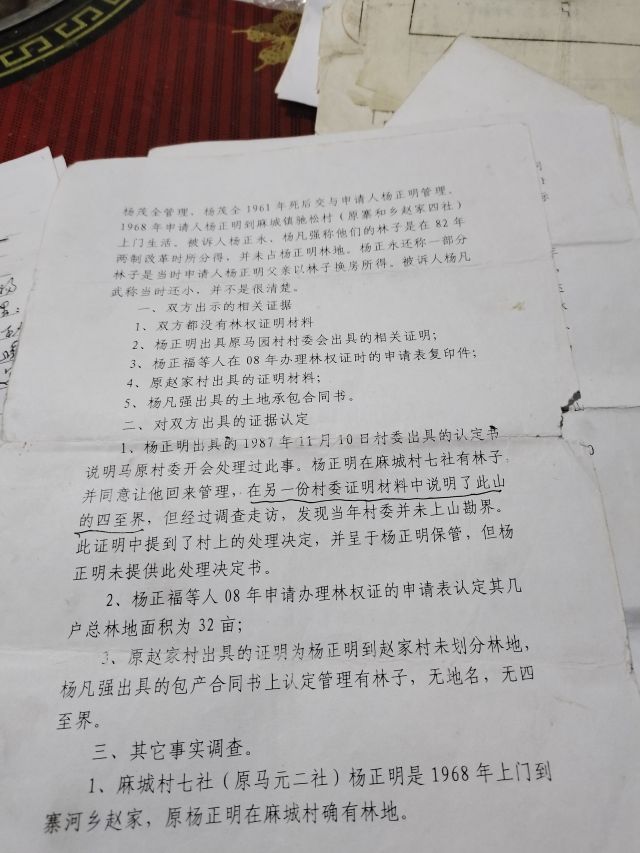 杨茂全管理，杨茂全1961年死后交与申请人杨正明管理。
1968年申请人杨正明到麻城镇驰松村（原寨和乡赵家四社）
上门生活。被诉人杨正永，杨凡强称他们的林子是在82年
两制改革时所分得，并未占杨正明林地。杨正永还称一部分
林子是当时申请人杨正明父亲以林子换房所得。被诉人杨凡
武称当时还小，并不是很清楚。
一、双方出示的相关证据
1、双方都没有林权证明材料
2、杨正明出具原马园村村委会出具的相关证明；
3、杨正福等人在08年办理林权证时的申请表复印件；
4、原赵家村出具的证明材料；
5、杨凡强出具的土地承包合同书。
二、对双方出具的证据认定
1、杨正明出具的1987年11月10日村委出具的认定书
说明马原村委开会处理过此事。杨正明在麻城村七社有林子，
并同意让他回来管理，在另一份村委证明材料中说明了此山
的四至界，但经过调查走访，发现当年村委并未上山勘界。
此证明中提到了村上的处理决定，并呈于杨正明保管，但杨
正明未提供此处理决定书。
2、杨正福等人08年申请办理林权证的申请表认定其几
户总林地面积为32亩；
3、原赵家村出具的证明为杨正明到赵家村未划分林地，
杨凡强出具的包产合同书上认定管理有林子，无地名，无四
至界。
三、其它事实调查。
1、麻城村七社（原马元二社）杨正明是1968年上门到
寨河乡赵家，原杨正明在麻城村确有林地。